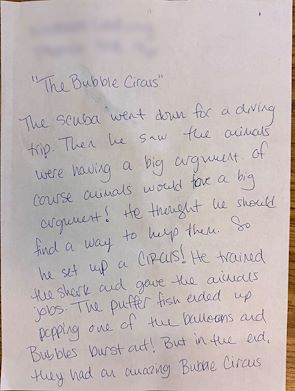 "The Bubble Circus"
The scuba went down for a diving
trip. Then he saw the animals
were having a big argument. Of
course animals would have a big
argument! He thought he should
find a way to help them. So
he set up a CIRCUS! He trained
the shark and gave the animals
jobs. The puffer fish ended up
popping one of the balloons and
Bubbles burst out! But in the end,
they had an amazing Bubble Circus